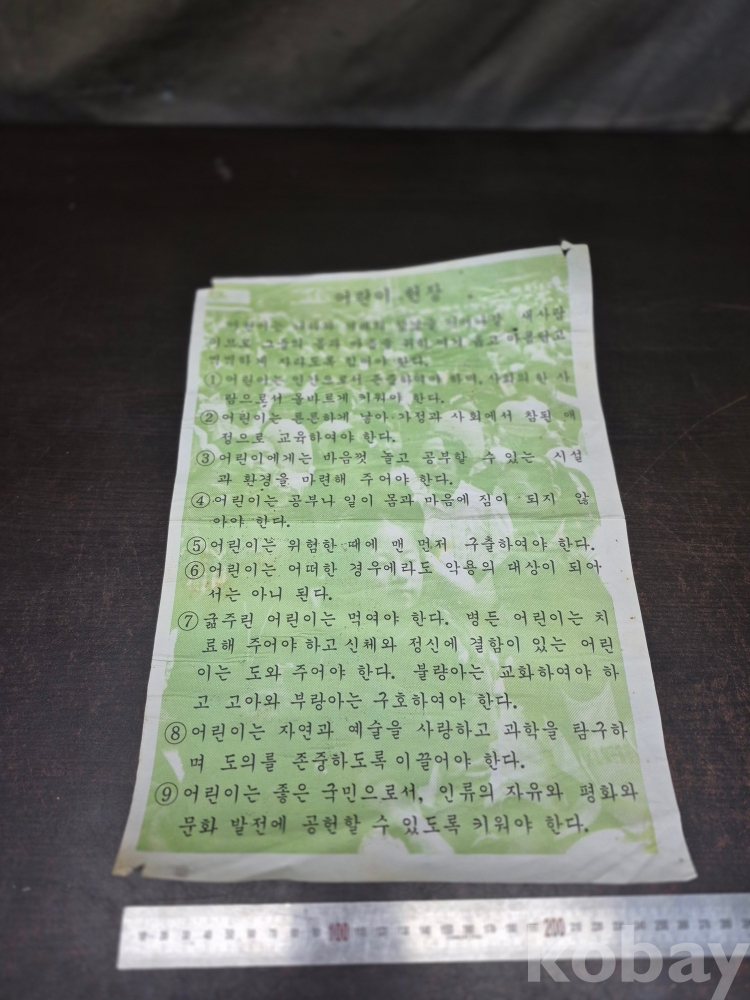 어린이 헌장
어린이는 나라와 겨레의 앞날을 이어나갈 새사람
이므로 그들의 몸과 마음을 귀히 여겨 옳고 아름답고
씩씩하게 자라도록 힘써야 한다.
① 어린이는 인간으로서 존중하여야 하며, 사회의 한 사
람으로서 올바르게 키워야 한다.
② 어린이는 튼튼하게 낳아 가정과 사회에서 참된 애
정으로 교육하여야 한다.
③ 어린이에게는 마음껏 놀고 공부할 수 있는 시설
과 환경을 마련해 주어야 한다.
④ 어린이는 공부나 일이 몸과 마음에 짐이 되지 않
아야 한다.
⑤ 어린이는 위험한 때에 맨 먼저 구출하여야 한다.
⑥ 어린이는 어떠한 경우에라도 악용의 대상이 되어
서는 아니 된다.
⑦ 굶주린 어린이는 먹여야 한다. 병든 어린이는 치
료해 주어야 하고 신체와 정신에 결함이 있는 어린
이는 도와 주어야 한다. 불량아는 교화하여야 하
고 고아와 부랑아는 구호하여야 한다.
⑧ 어린이는 자연과 예술을 사랑하고 과학을 탐구하
며 도의를 존중하도록 이끌어야 한다.
⑨ 어린이는 좋은 국민으로서, 인류의 자유와 평화와
문화 발전에 공헌할 수 있도록 키워야 한다.
100 200
kobay